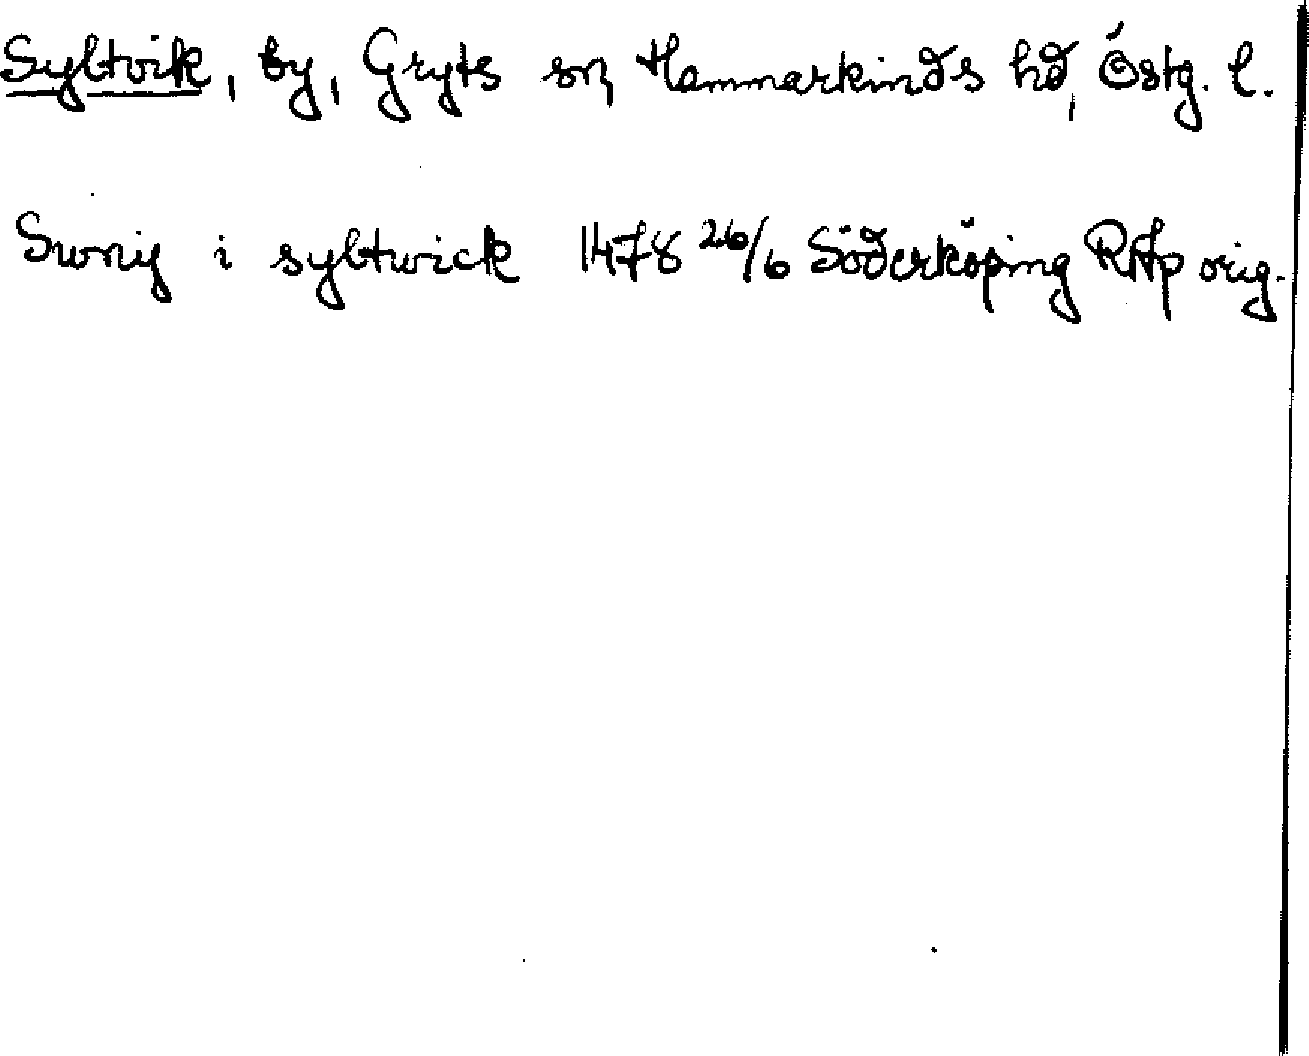 Syltvik, by, Gryts sn, Hammarkinds hd, Östg. l.
Swnij i syltwick 1478 26/6 Söderköping RAp orig.